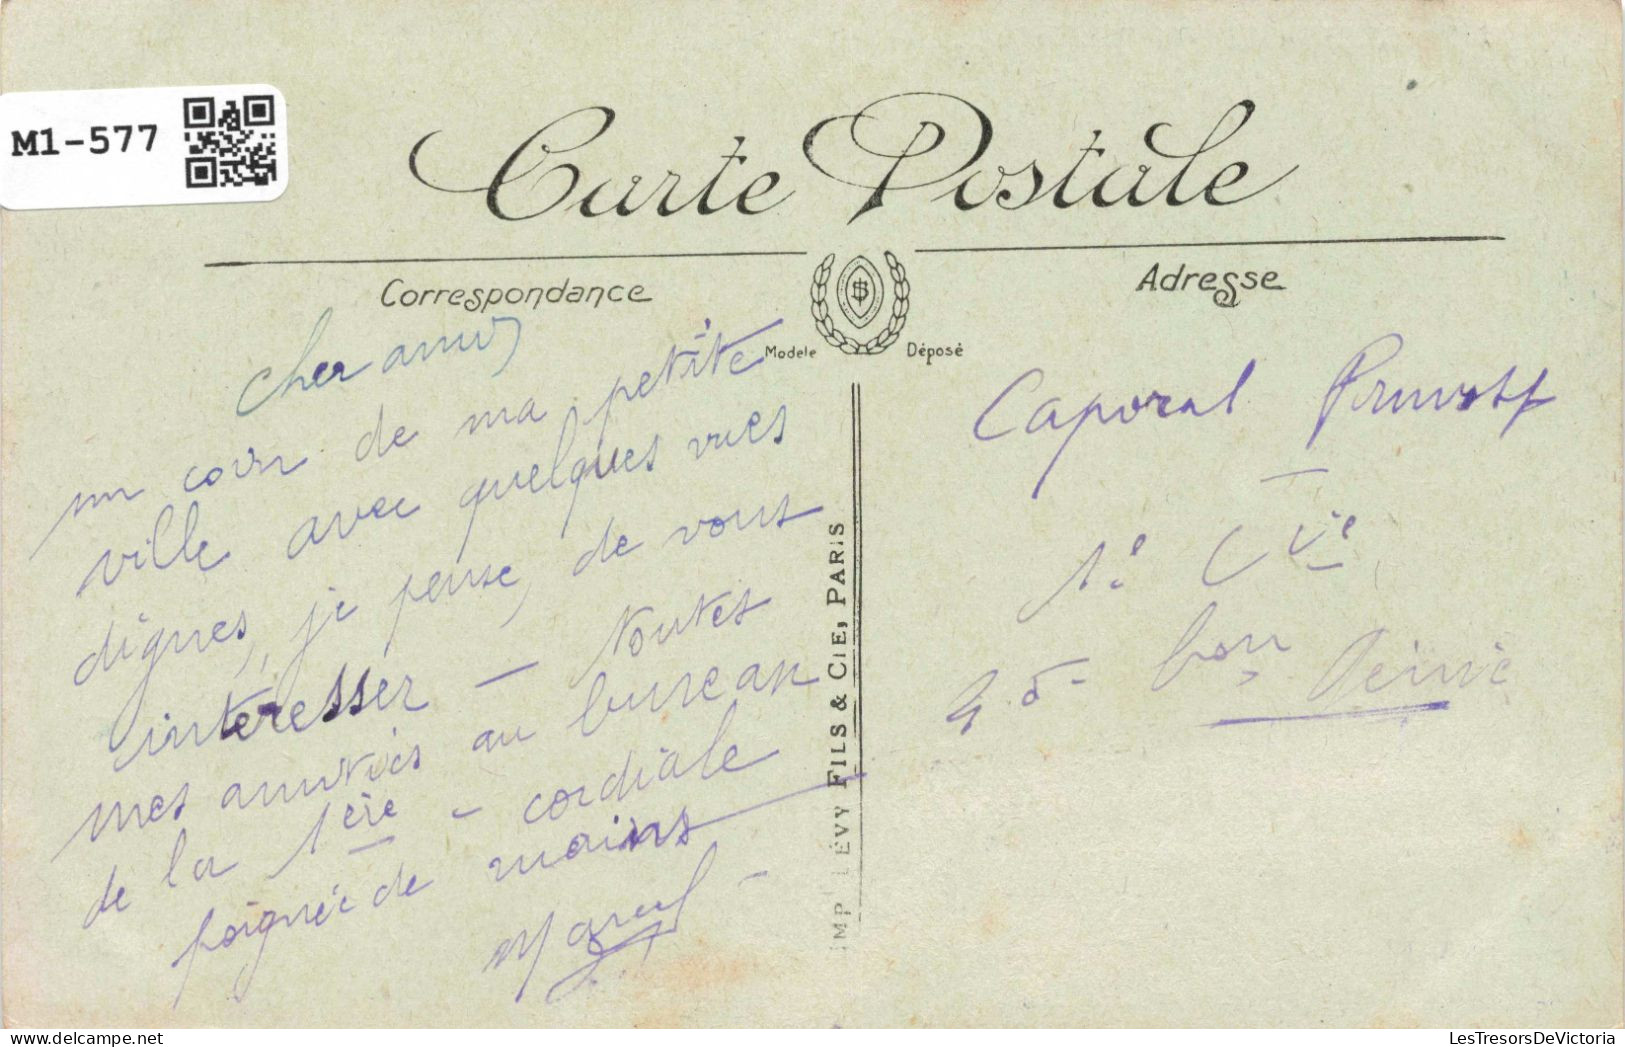 M1-577
Carte Postale
Correspondance
Adresse
Modele Déposé
cher ami
un coin de ma petite
ville avec quelques vues
dignes, je pense, de vous
interesser — toutes
mes amitiés au bureau
de la 1ère - cordiale
poignée de mains
Marcel -
Caporal
1e Cie
bon
IMP LÉVY FILS & CIE, PARIS
LesTresorsDeVictoria.com